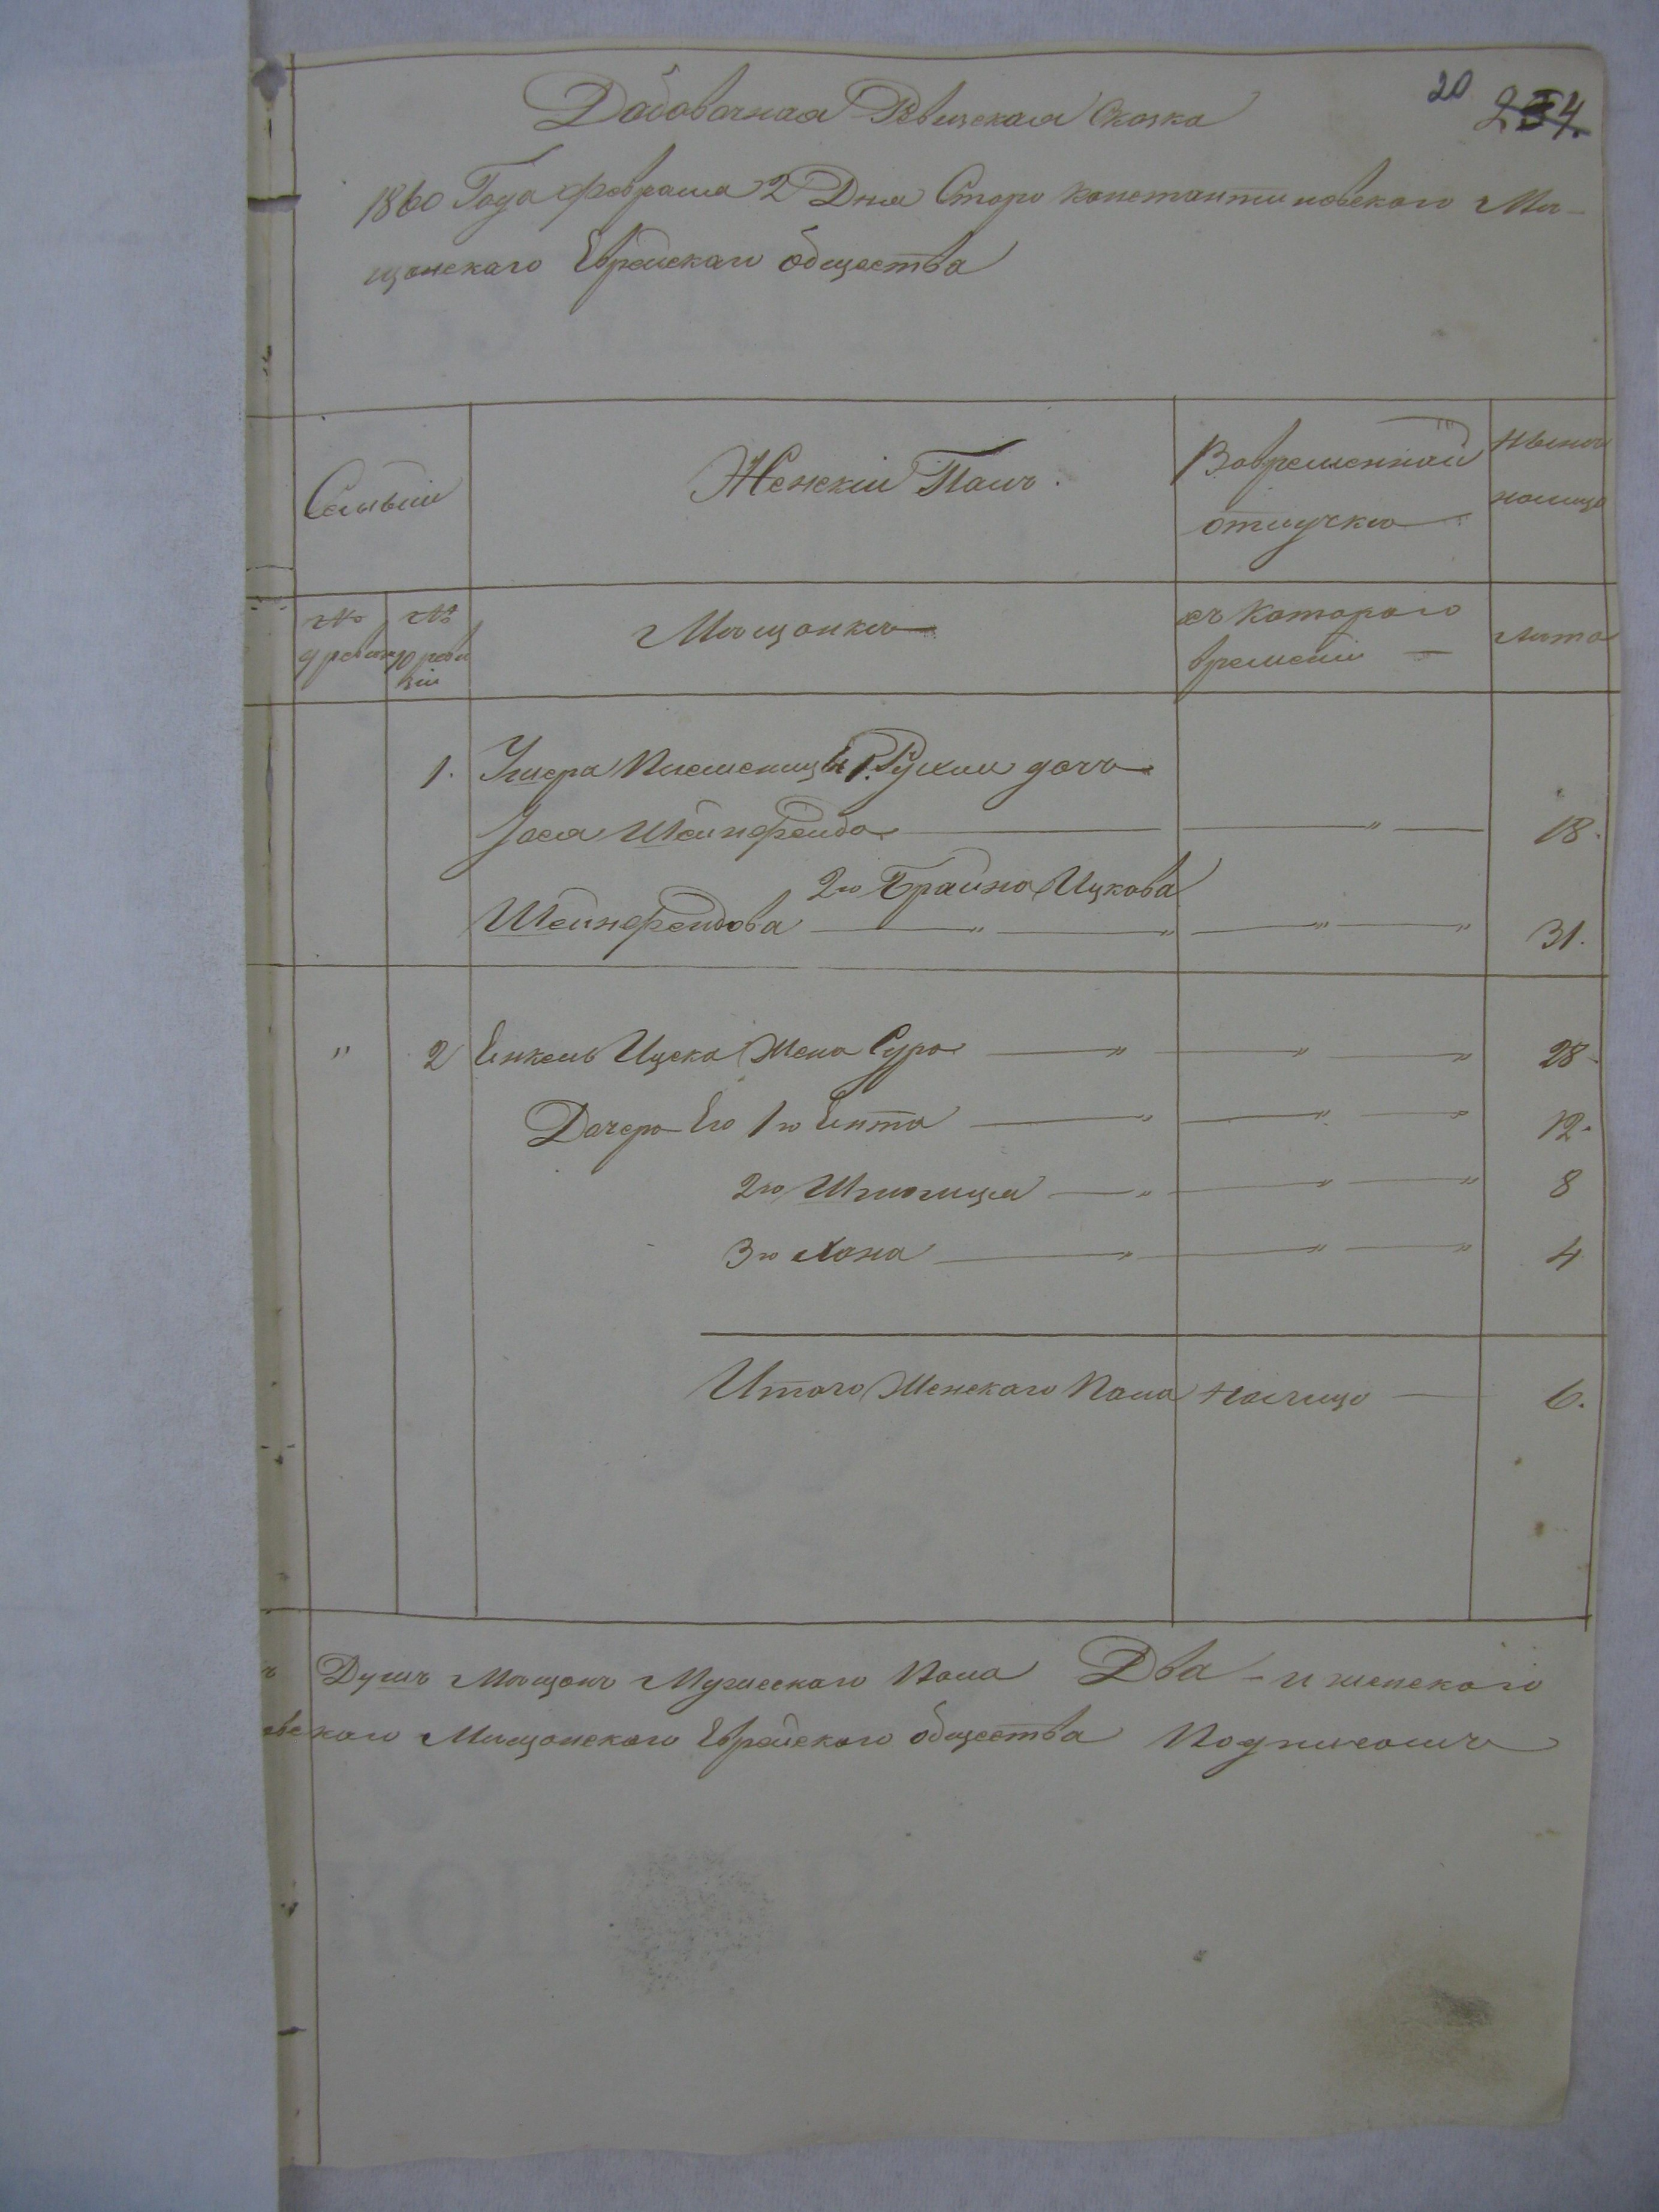 20 234.
Добовочная Ревизская Сказка
1860 Года февраля 2 Дня Старо константиновского Мѣ-
щанскаго Еврейскаго общества
Семьи
Женский Полъ.
Вовременной
отлучки
Нынѣ
налицо
№
9 ревизи
№
10 реви
зіи
Мѣщанки
съ Которого
времени
Лѣта
1. Умера Племеницы 1. Рухли дочь
Іося Шейнфельда " 18.
2я Брайна Ицкова
Шейнфельдова " " " " 31.
" 2 Енкель Ицека Жена Сура " " " 28
Дочеръ Его 1я Ента " " " 12.
2я " " " 8
3я Хана " " " 4
Итого Женскаго Пола Налицо 6.
ъ Душъ Мѣщанъ Мужескаго Пола Два - и женскаго
вскаго Мѣщанскаго Еврейскаго общества Подписомъ